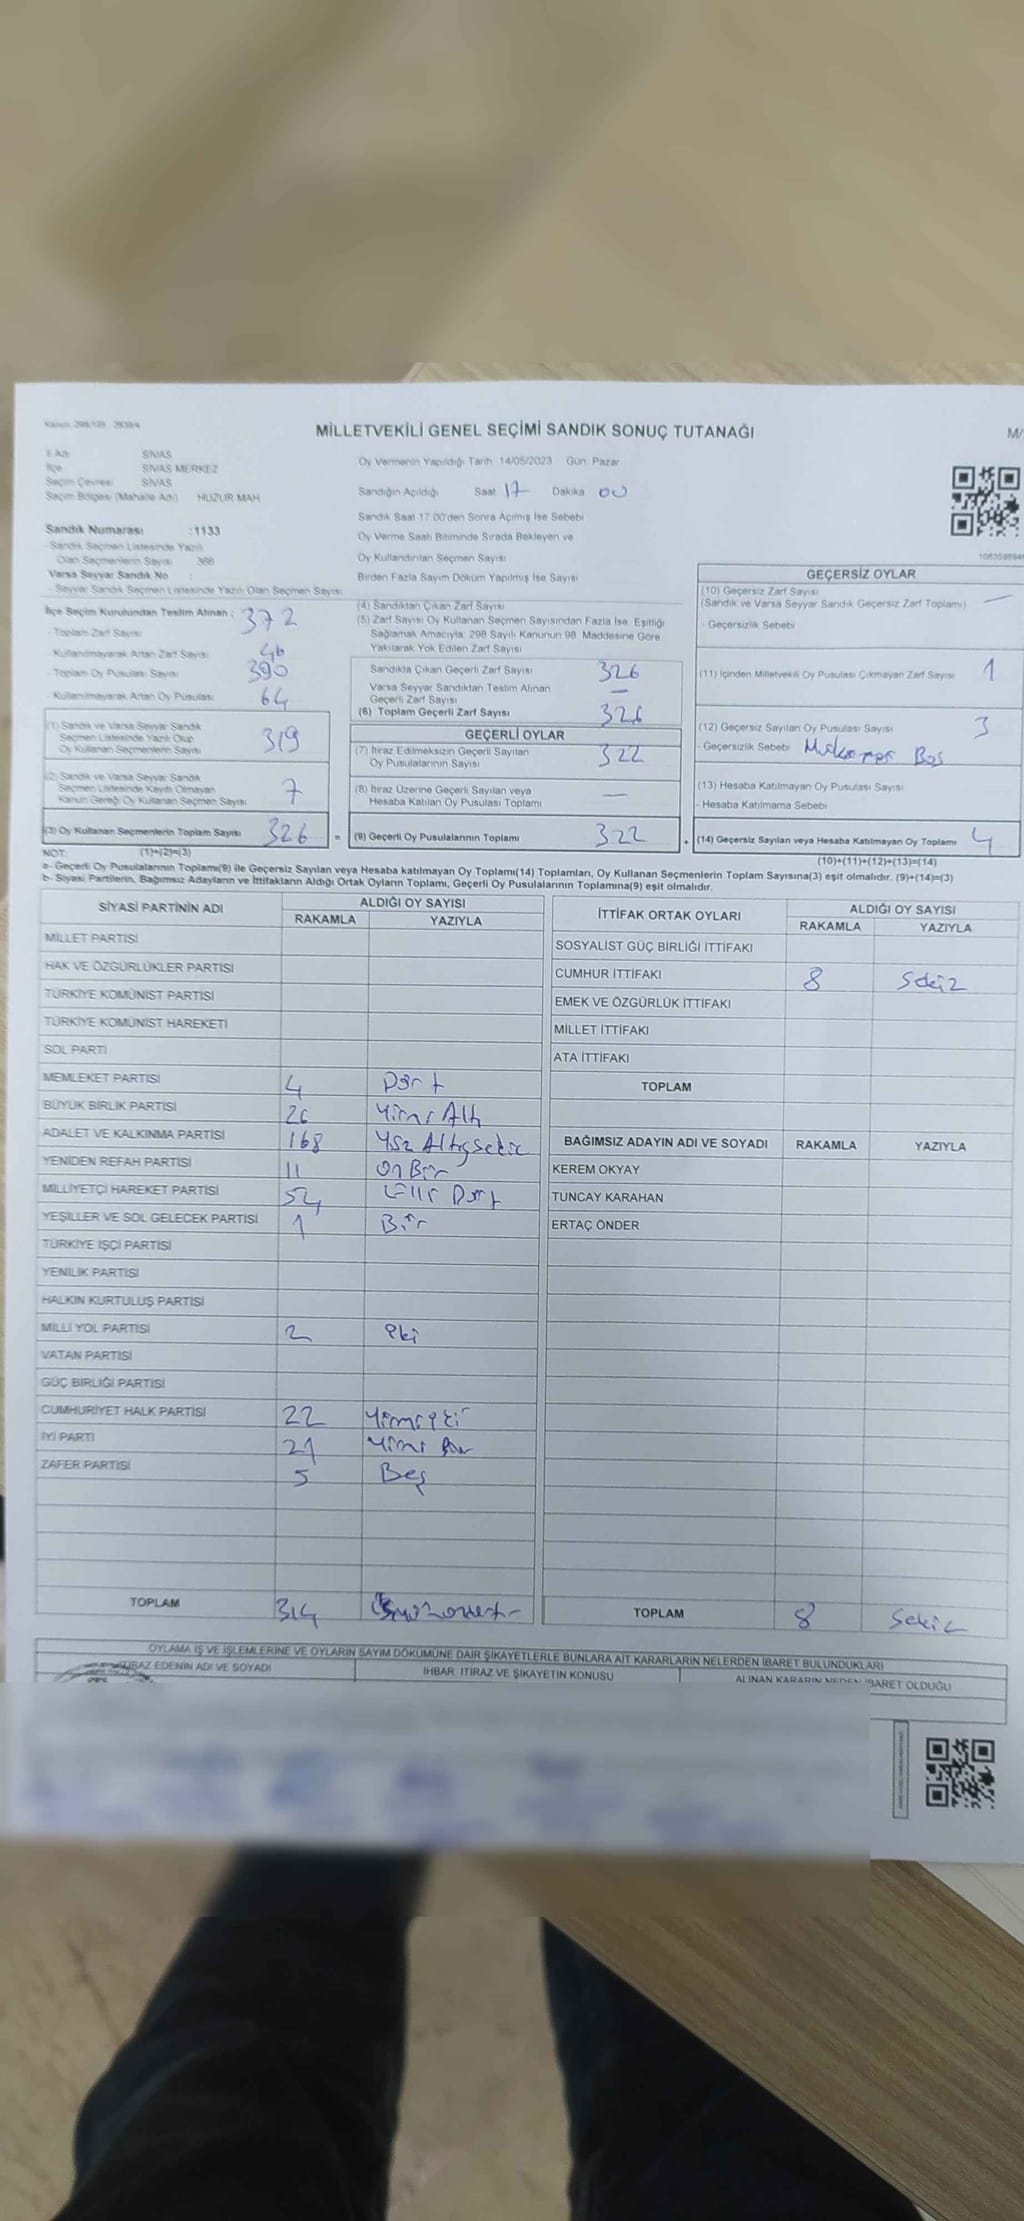 MİLLETVEKİLİ GENEL SEÇİMİ SANDIK SONUÇ TUTANAĞI
M/
İl Adı SİVAS
İlçe SİVAS MERKEZ
Seçim Çevresi SİVAS
Seçim Bölgesi (Mahalle Adı) HUZUR MAH
Sandık Numarası :1133
- Sandık Seçmen Listesinde Yazılı
Olan Seçmenlerin Sayısı 366
Varsa Seyyar Sandık No :
- Seyyar Sandık Seçmen Listesinde Yazılı Olan Seçmen Sayısı:
Oy Vermenin Yapıldığı Tarih 14/05/2023 Gün: Pazar
Sandığın Açıldığı Saat 17 Dakika 00
Sandık Saat 17:00'den Sonra Açımış İse Sebebi
Oy Verme Saati Bitiminde Sırada Bekleyen ve
Oy Kullandırılan Seçmen Sayısı
Birden Fazla Sayım Döküm Yapılmış İse Sayısı
İlçe Seçim Kurulundan Teslim Alınan : 372
- Toplam Zarf Sayısı
- Kullanılmayarak Artan Zarf Sayısı 46
- Toplam Oy Pusulası Sayısı 390
- Kullanılmayarak Artan Oy Pusulası 64
(1) Sandık ve Varsa Seyyar Sandık
Seçmen Listesinde Yazılı Olup
Oy Kullanan Seçmenlerin Sayısı 319
(2) Sandık ve Varsa Seyyar Sandık
Seçmen Listesinde Kayıtlı Olmayan
Kanun Gereği Oy Kullanan Seçmen Sayısı 7
(3) Oy Kullanan Seçmenlerin Toplam Sayısı 326 =
(4) Sandıktan Çıkan Zarf Sayısı
(5) Zarf Sayısı Oy Kullanan Seçmen Sayısından Fazla İse, Eşitliği
Sağlamak Amacıyla; 298 Sayılı Kanunun 98. Maddesine Göre
Yakılarak Yok Edilen Zarf Sayısı
Sandıkta Çıkan Geçerli Zarf Sayısı 326
Varsa Seyyar Sandıktan Teslim Alınan
Geçerli Zarf Sayısı —
(6) Toplam Geçerli Zarf Sayısı 326
GEÇERLİ OYLAR
(7) İtiraz Edilmeksizin Geçerli Sayılan
Oy Pusulalarının Sayısı 322
(8) İtiraz Üzerine Geçerli Sayılan veya
Hesaba Katılan Oy Pusulası Toplamı —
(9) Geçerli Oy Pusulalarının Toplamı 322 +
GEÇERSİZ OYLAR
(10) Geçersiz Zarf Sayısı
(Sandık ve Varsa Seyyar Sandık Geçersiz Zarf Toplamı) —
- Geçersizlik Sebebi
(11) İçinden Milletvekili Oy Pusulası Çıkmayan Zarf Sayısı 1
(12) Geçersiz Sayılan Oy Pusulası Sayısı 3
- Geçersizlik Sebebi
(13) Hesaba Katılmayan Oy Pusulası Sayısı
- Hesaba Katılmama Sebebi
(14) Geçersiz Sayılan veya Hesaba Katılmayan Oy Toplamı 4
NOT: (1)+(2)=(3)
(10)+(11)+(12)+(13)=(14)
a- Geçerli Oy Pusulalarının Toplamı(9) ile Geçersiz Sayılan veya Hesaba katılmayan Oy Toplamı(14) Toplamları, Oy Kullanan Seçmenlerin Toplam Sayısına(3) eşit olmalıdır. (9)+(14)=(3)
b- Siyasi Partilerin, Bağımsız Adayların ve İttifakların Aldığı Ortak Oyların Toplamı, Geçerli Oy Pusulalarının Toplamına(9) eşit olmalıdır.
SİYASİ PARTİNİN ADI ALDIĞI OY SAYISI
RAKAMLA YAZIYLA
MİLLET PARTİSİ
HAK VE ÖZGÜRLÜKLER PARTİSİ
TÜRKİYE KOMÜNİST PARTİSİ
TÜRKİYE KOMÜNİST HAREKETİ
SOL PARTİ
MEMLEKET PARTİSİ 4 Dört
BÜYÜK BİRLİK PARTİSİ 26 Yirmi Altı
ADALET VE KALKINMA PARTİSİ 168 Yüz Altmış Sekiz
YENİDEN REFAH PARTİSİ 11 On Bir
MİLLİYETÇİ HAREKET PARTİSİ 54 Elli Dört
YEŞİLLER VE SOL GELECEK PARTİSİ 1 Bir
TÜRKİYE İŞÇİ PARTİSİ
YENİLİK PARTİSİ
HALKIN KURTULUŞ PARTİSİ
MİLLİ YOL PARTİSİ 2 İki
VATAN PARTİSİ
GÜÇ BİRLİĞİ PARTİSİ
CUMHURİYET HALK PARTİSİ 22 Yirmi iki
İYİ PARTİ 21 Yirmi Bir
ZAFER PARTİSİ 5 Beş
TOPLAM 314
İTTİFAK ORTAK OYLARI ALDIĞI OY SAYISI
RAKAMLA YAZIYLA
SOSYALİST GÜÇ BİRLİĞİ İTTİFAKI
CUMHUR İTTİFAKI 8 Sekiz
EMEK VE ÖZGÜRLÜK İTTİFAKI
MİLLET İTTİFAKI
ATA İTTİFAKI
TOPLAM
BAĞIMSIZ ADAYIN ADI VE SOYADI RAKAMLA YAZIYLA
KEREM OKYAY
TUNCAY KARAHAN
ERTAÇ ÖNDER
TOPLAM 8 Sekiz
OYLAMA İŞ VE İŞLEMLERİNE VE OYLARIN SAYIM DÖKÜMÜNE DAİR ŞİKAYETLERLE BUNLARA AİT KARARLARIN NELERDEN İBARET BULUNDUKLARI
İTİRAZ EDENİN ADI VE SOYADI İHBAR, İTİRAZ VE ŞİKAYETİN KONUSU ALINAN KARARIN NEDEN İBARET OLDUĞU